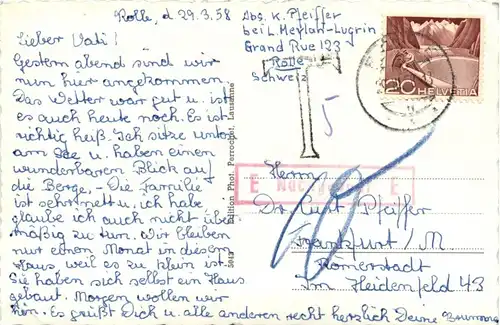 Rolle, d 29.3.58
Lieber Vati!
Gestern abend sind wir
nun hier angekommen.
Das Wetter war gut u. ist
es auch heute noch. Es ist
richtig heiß. Ich sitze unten
am See u. haben einen
wunderbaren Blick auf
die Berge. - Die Familie
ist sehr nett u. ich habe
glaube ich auch nicht über
mäßig zu tun. Wir bleiben
nur einen Monat in diesem
Haus weil es zu klein ist.
Sie haben sich selbst ein Haus
gebaut. Morgen wollen wir
hin. Es grüßt Dich u. alle anderen recht herzlich Deine
Abs. K. Pfeiffer
bei L. Meylan-Lugrin
Grand Rue 123
Rolle
Schweiz
HELVETIA
20
T
5
Edition Phot. Perrochet, Lausanne
5043
E E
Herrn
Dr. Curt Pfeiffer
Frankfurt/M
Römerstadt
Im Heidenfeld 43